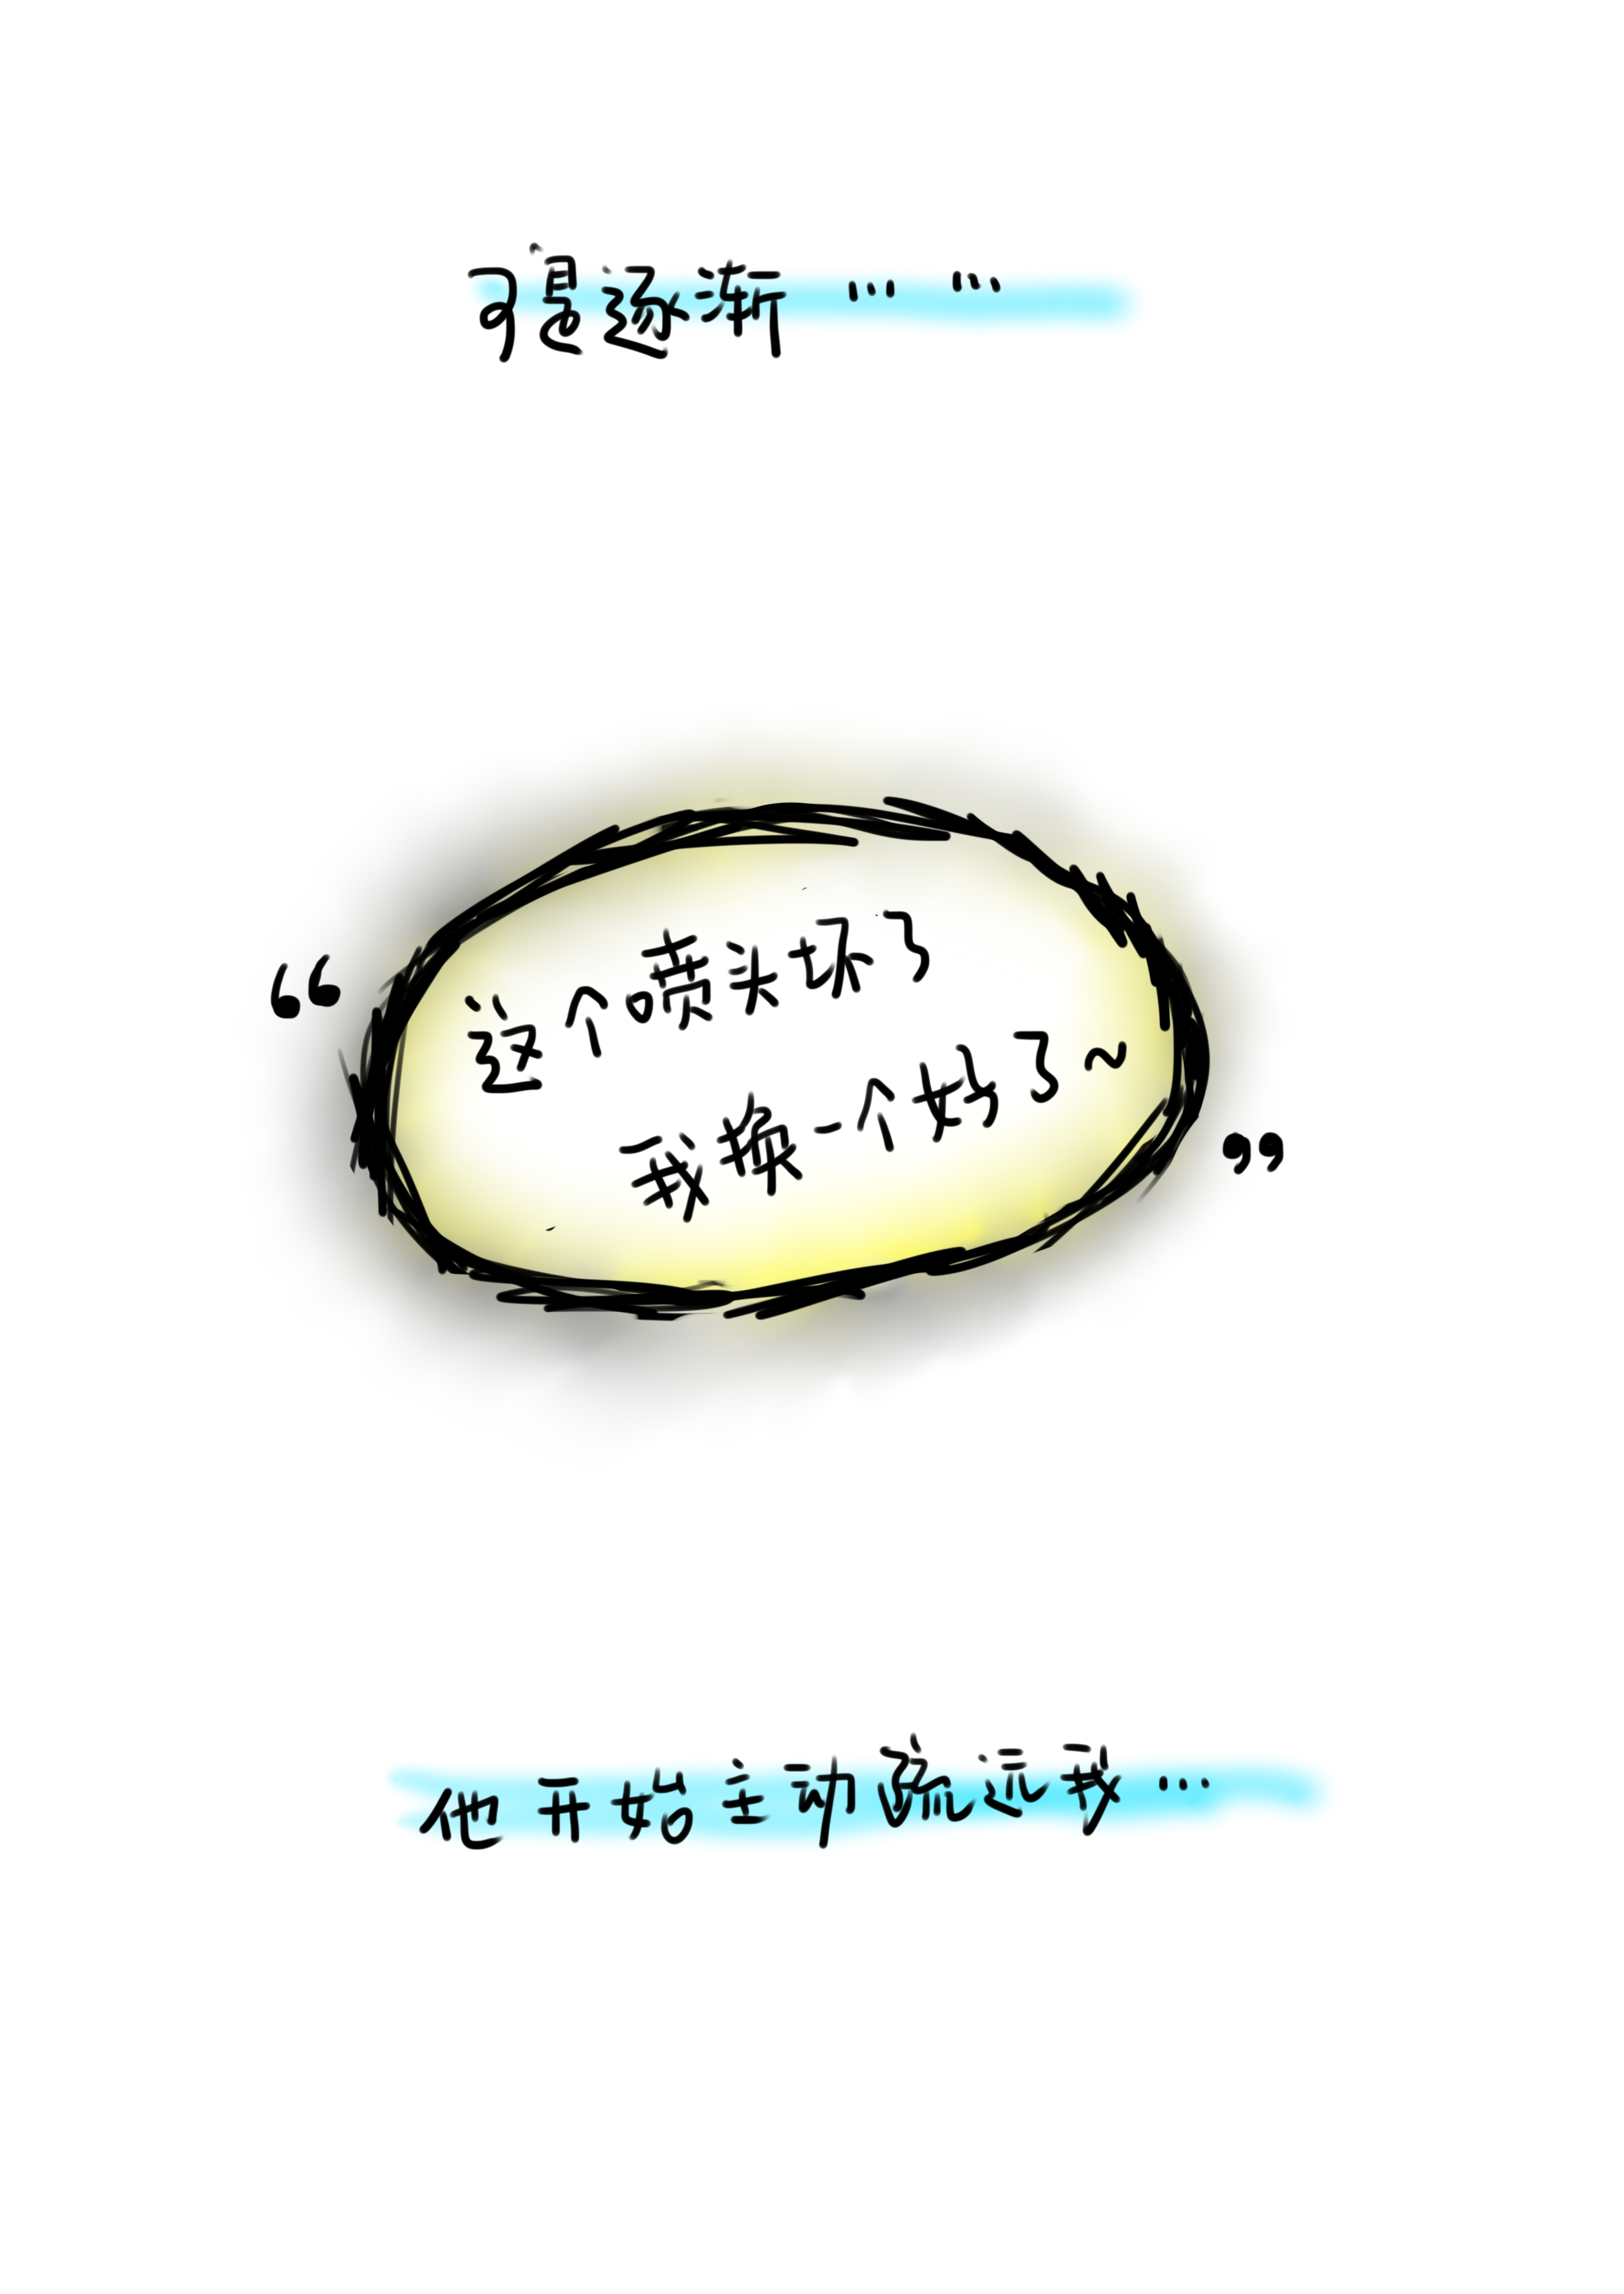 可是逐渐……
“这个喷头坏了
我换一个好了~”
他开始主动疏远我…